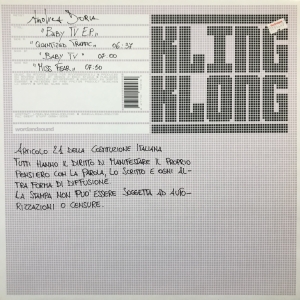 Andrea Doria
"Baby TV E.P."
"Quantized Traffic" 06:37
"Baby TV" 07:00
"Miss Fear" 07:50
KLING
KLONG
Articolo 21 della Costituzione Italiana
Tutti hanno il diritto di manifestare il proprio
pensiero con la parola, lo scritto e ogni al-
tra forma di diffusione.
La stampa non può essere soggetta ad auto-
rizzazioni o censure.